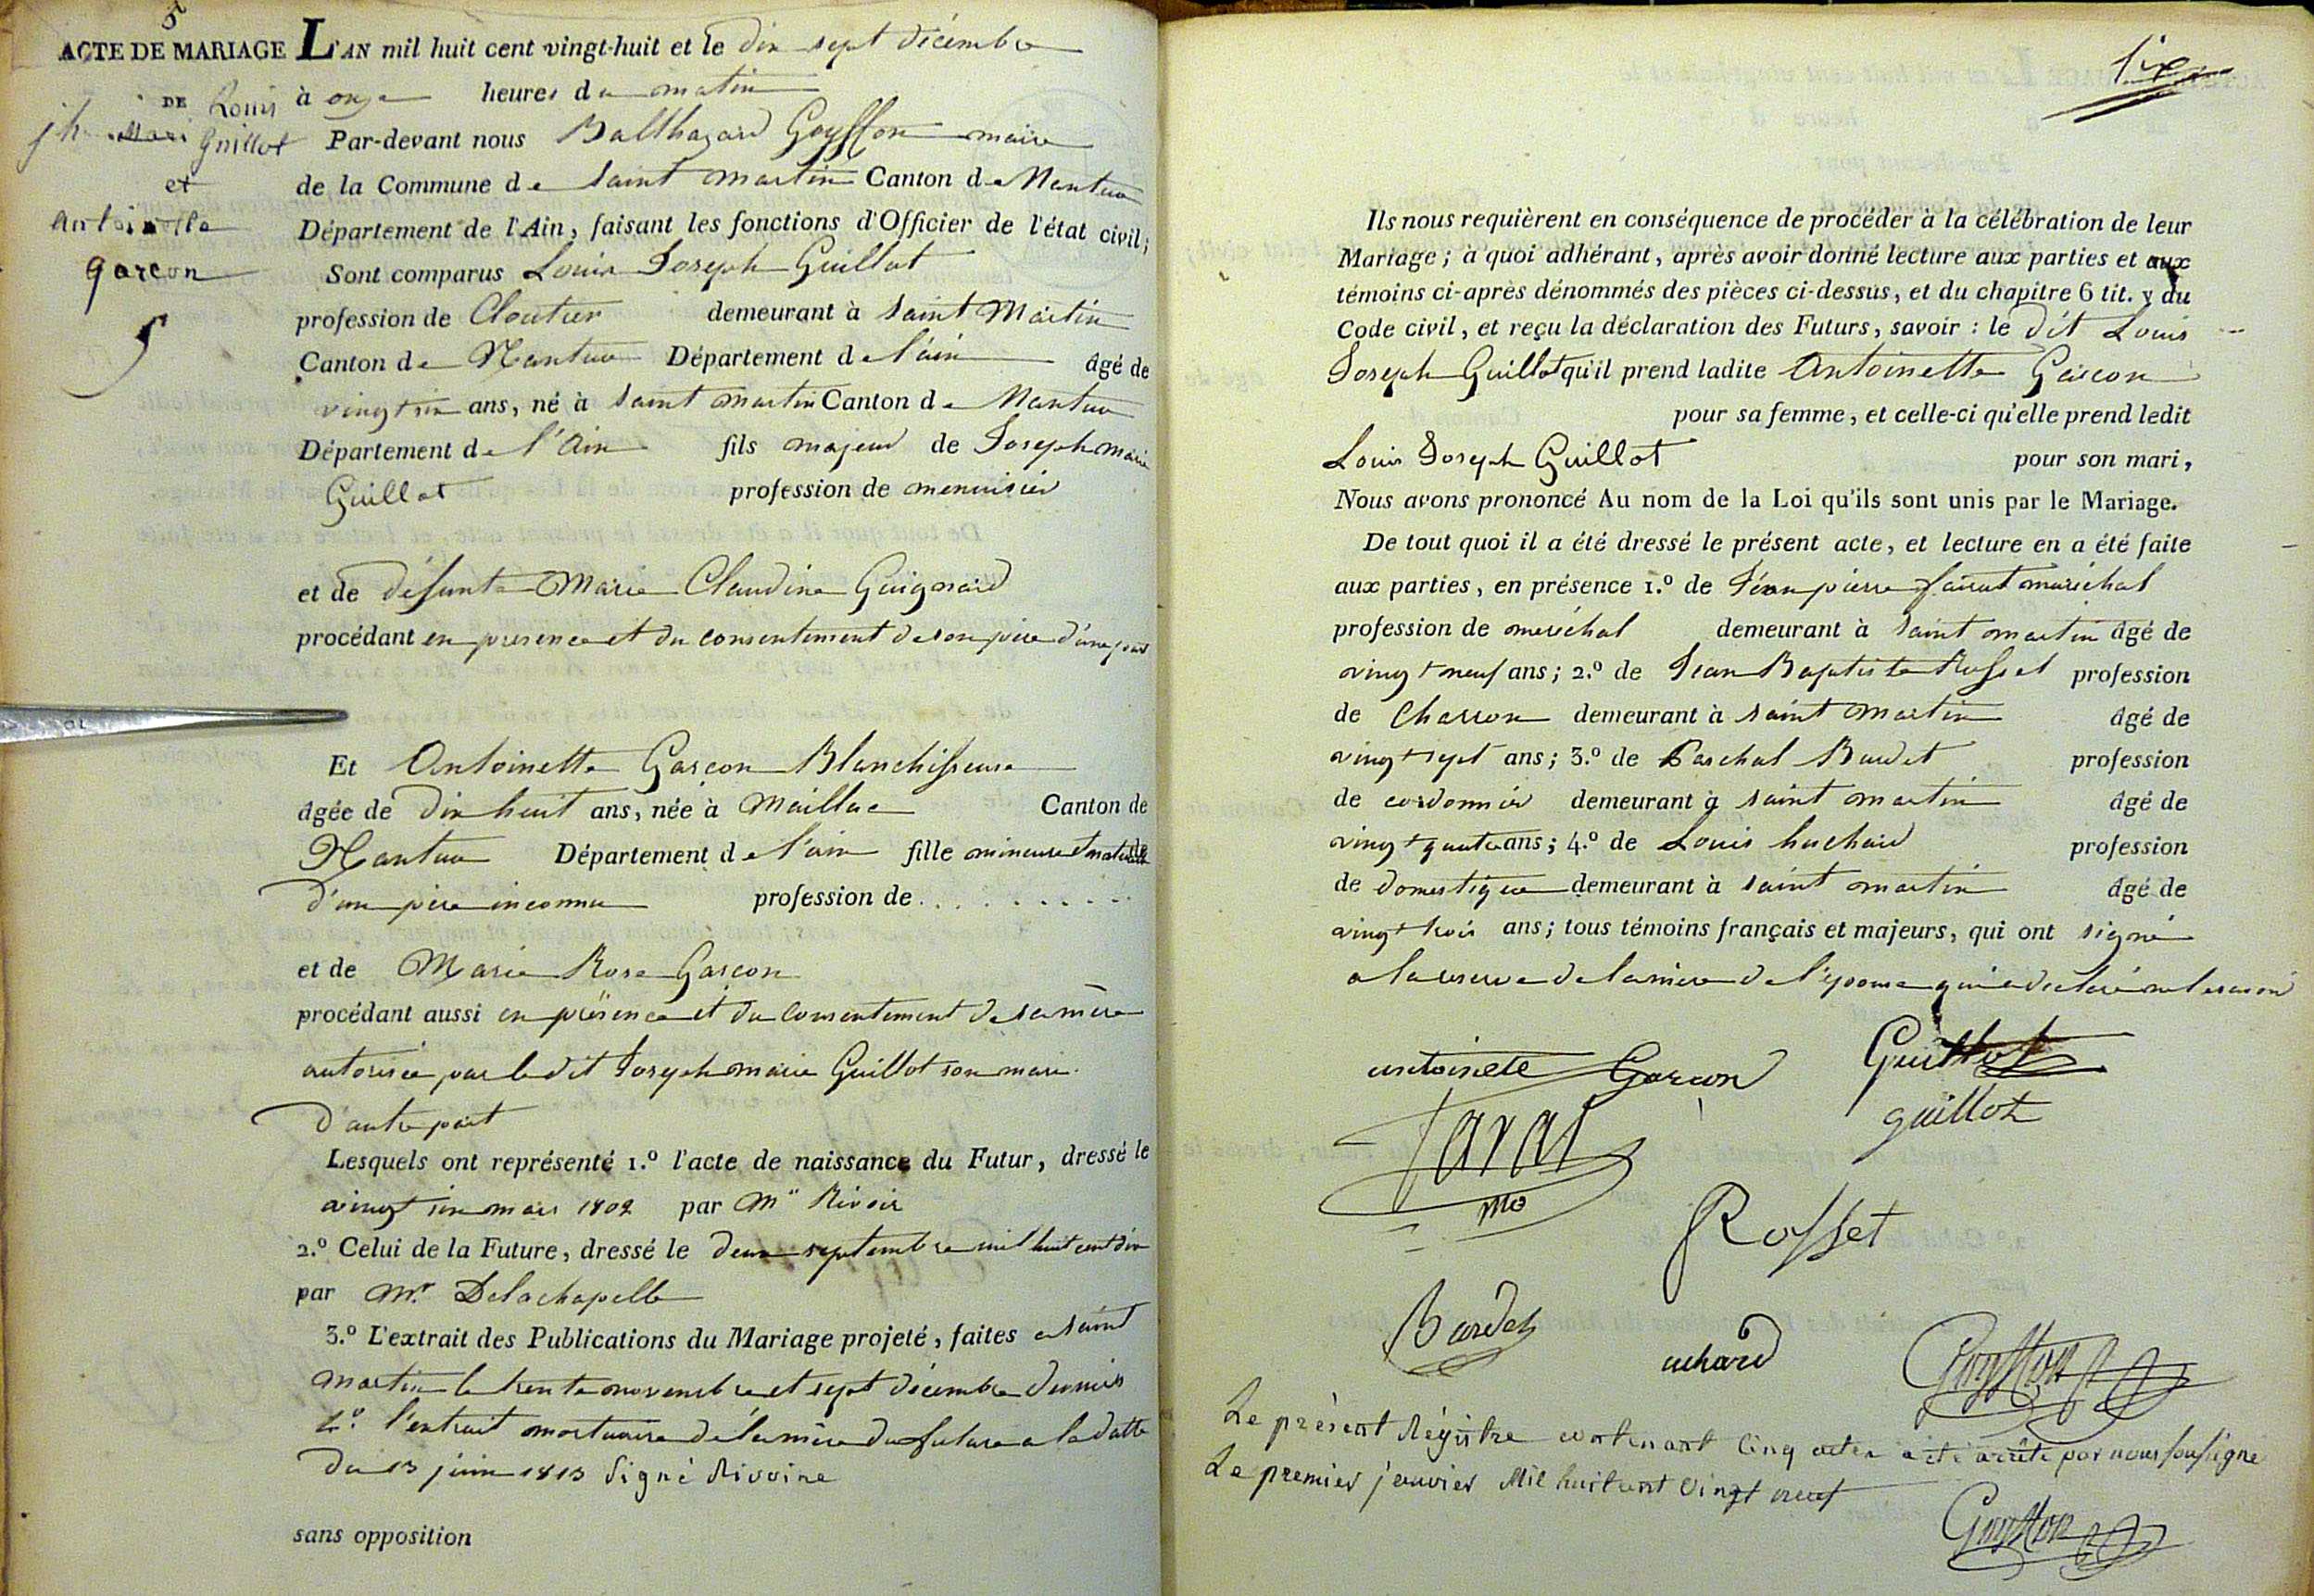 5
ACTE DE MARIAGE L'AN mil huit cent vingt-huit et le dix sept décembre
DE Louis à onze heures du matin
jh Mari Guillot Par-devant nous Balthazard Goyffon maire
et de la Commune de saint martin Canton de Nantua
antoinette Département de l'Ain, faisant les fonctions d'Officier de l'état civil;
garcon Sont comparus Louis Joseph Guillot
profession de Cloutier demeurant à saint Martin
Canton de Nantua Département de l'ain âgé de
vingt six ans, né à saint martin Canton de Nantua
Département de l'Ain fils majeur de Joseph marie
Guillot profession de menuisier
et de défunte Marie Claudine Guignard
procédant en presence et du consentement de son père d'une part
Et Antoinette Garcon Blanchisseuse
âgée de dix huit ans, née à Maillac Canton de
Nantua Département de l'ain fille mineure et naturelle de
d'un père inconnu profession de . . . . . . . . .
et de Marie Rose Garcon
procédant aussi en présence et du consentement de sa mère
autorisée par le dit Joseph marie Guillot son mari
d'autre part
Lesquels ont représenté 1.º l'acte de naissance du Futur, dressé le
vingt six mars 1802 par Mr Rivoir
2.º Celui de la Future, dressé le deux septembre mil huit cent dix
par Mr. Delachapelle
3.º L'extrait des Publications du Mariage projeté, faites a saint
martin le trente novembre et sept décembre dernier
4.º l'extrait mortuaire de la mère du future a la datte
du 13 juin 1813 Signé Rivoire
sans opposition
six
Ils nous requièrent en conséquence de procéder à la célébration de leur
Mariage; à quoi adhérant, après avoir donné lecture aux parties et aux
témoins ci-après dénommés des pièces ci-dessus, et du chapitre 6 tit. y du
Code civil, et reçu la déclaration des Futurs, savoir : le dit Louis
Joseph Guillot qu'il prend ladite Antoinette Garcon
pour sa femme, et celle-ci qu'elle prend ledit
Louis Joseph Guillot pour son mari,
Nous avons prononcé Au nom de la Loi qu'ils sont unis par le Mariage.
De tout quoi il a été dressé le présent acte, et lecture en a été faite
aux parties, en présence 1.º de Jean pierre maréchal
profession de maréchal demeurant à saint martin âgé de
vingt neuf ans; 2.º de Jean Baptiste Rosset profession
de Charron demeurant à saint martin âgé de
vingt sept ans; 3.º de Paschal Bardet profession
de cordonnier demeurant à saint martin âgé de
vingt quatre ans; 4.º de Louis huchard profession
de domestique demeurant à saint martin âgé de
vingt trois ans; tous témoins français et majeurs, qui ont signé
a la reserve de la mère de l'épouse qui a declaré ne le savoir
antoinete Garcon Guillot
guillot
Rosset
Bardet uchard Goyffon
Le présent Régistre contenant Cinq actes a été arrêté par nous soussigné
Le premier janvier Mil huit cent vingt neuf
Goyffon